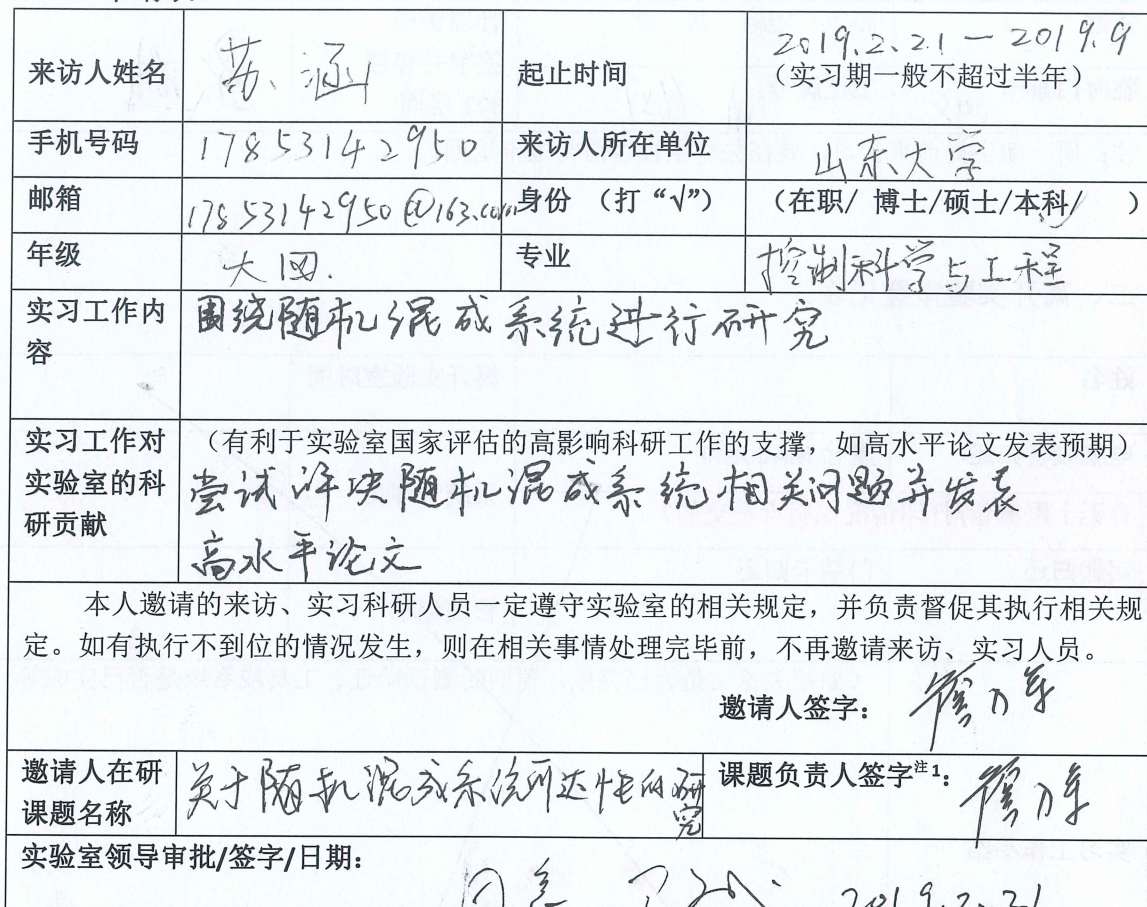 来访人姓名 苏涵 起止时间 2019.2.21—2019.9
(实习期一般不超过半年)
手机号码 17853142950 来访人所在单位 山东大学
邮箱 17853142950@163.com 身份 (打“√”) (在职/ 博士/硕士/本科/ )
年级 大四. 专业 控制科学与工程
实习工作内容 围绕随机混成系统进行研究
实习工作对 (有利于实验室国家评估的高影响科研工作的支撑,如高水平论文发表预期)
实验室的科 尝试解决随机混成系统相关问题并发表
研贡献 高水平论文
本人邀请的来访、实习科研人员一定遵守实验室的相关规定,并负责督促其执行相关规
定。如有执行不到位的情况发生,则在相关事情处理完毕前,不再邀请来访、实习人员。
邀请人签字:
邀请人在研 关于随机混成系统可达性的研究 课题负责人签字注1:
课题名称
实验室领导审批/签字/日期:
同意 2019.2.21